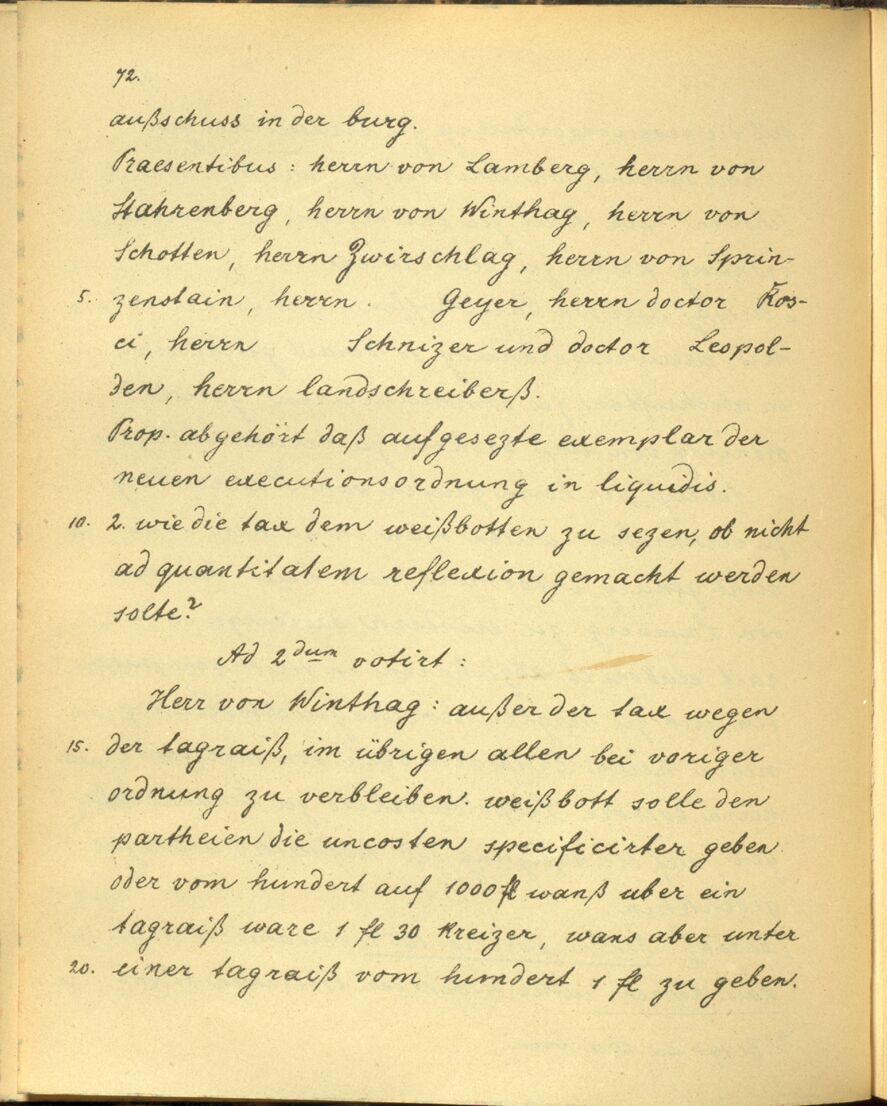 72.
außschuss in der burg.
Praesentibus: herrn von Lamberg, herrn von
Stahrenberg, herrn von Winthag, herrn von
Schotten, herrn Zwirschlag, herrn von Sprin-
5. zenstain, herrn . Geyer, herrn doctor Kos-
ci, herrn Schnizer und doctor Leopol-
den, herrn landschreiberß.
Prop. abgehört daß aufgesezte exemplar der
neuen executionsordnung in liquidis.
10. 2. wie die tax dem weißbotten zu sezen, ob nicht
ad quantitatem reflexion gemacht werden
solte?
Ad 2dum votirt:
Herr von Winthag: außer der tax wegen
15. der tagraiß, im übrigen allen bei voriger
ordnung zu verbleiben. weißbott solle den
partheien die uncosten specificirter geben
oder vom hundert auf 1000 fl wanß uber ein
tagraiß ware 1 fl 30 Kreizer, wans aber unter
20. einer tagraiß vom hundert 1 fl zu geben.